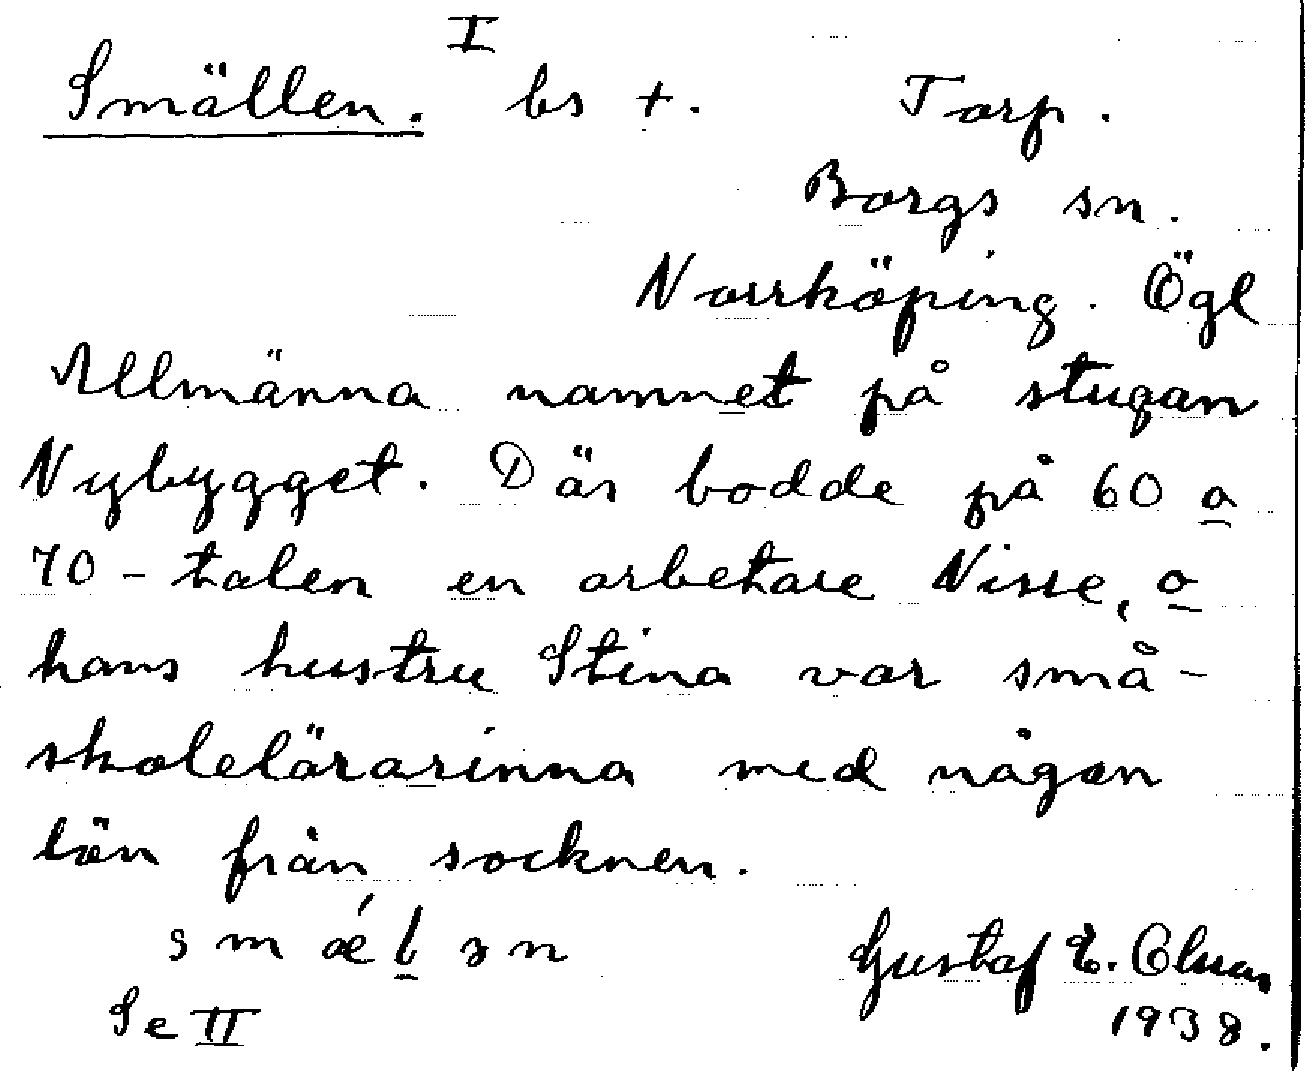 I
Smällen. bs +. Torp.
Borgs sn.
Norrköping. Ögl
Allmänna namnet på stugan
Nybygget. Där bodde på 60 o
70-talen en arbetare Nisse, o
hans hustru Stina var små-
skolelärarinna med någon
lön från socknen.
s m ǽ l̲ ə n Gustaf E. Olsson
Se II 1938.